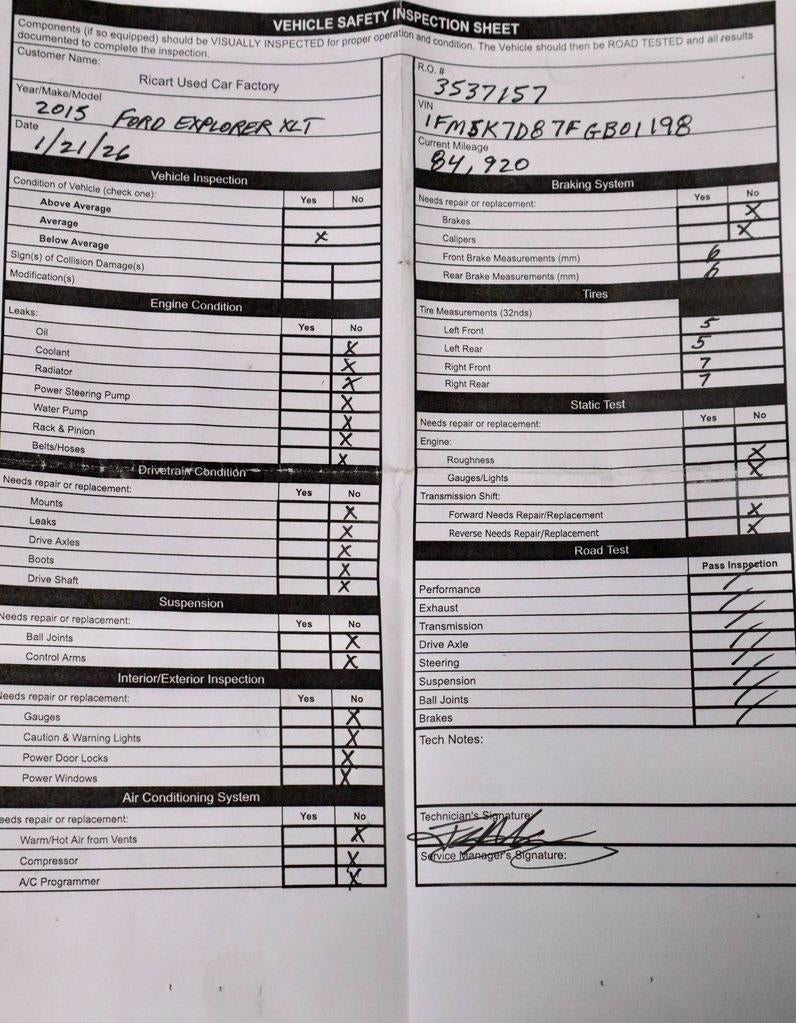 VEHICLE SAFETY INSPECTION SHEET
Components (if so equipped) should be VISUALLY INSPECTED for proper operation and condition. The Vehicle should then be ROAD TESTED and all results
documented to complete the inspection.
Customer Name:
Ricart Used Car Factory
Year/Make/Model
2015 FORD EXPLORER XLT
Date
1/21/26
Vehicle Inspection
Condition of Vehicle (check one): Yes No
Above Average
Average
Below Average X
Sign(s) of Collision Damage(s)
Modification(s)
Engine Condition
Leaks: Yes No
Oil X
Coolant X
Radiator X
Power Steering Pump X
Water Pump X
Rack & Pinion X
Belts/Hoses X
Drivetrain Condition
Needs repair or replacement: Yes No
Mounts X
Leaks X
Drive Axles X
Boots X
Drive Shaft X
Suspension
Needs repair or replacement: Yes No
Ball Joints X
Control Arms X
Interior/Exterior Inspection
Needs repair or replacement: Yes No
Gauges X
Caution & Warning Lights X
Power Door Locks X
Power Windows X
Air Conditioning System
eeds repair or replacement: Yes No
Warm/Hot Air from Vents X
Compressor X
A/C Programmer X
R.O. #
3537157
VIN
1FM5K7D87FGB01198
Current Mileage
84,920
Braking System
Needs repair or replacement: Yes No
Brakes X
Calipers X
Front Brake Measurements (mm) 6
Rear Brake Measurements (mm) 6
Tires
Tire Measurements (32nds)
Left Front 5
Left Rear 5
Right Front 7
Right Rear 7
Static Test
Needs repair or replacement: Yes No
Engine:
Roughness X
Gauges/Lights X
Transmission Shift:
Forward Needs Repair/Replacement X
Reverse Needs Repair/Replacement X
Road Test
Pass Inspection
Performance
Exhaust
Transmission
Drive Axle
Steering
Suspension
Ball Joints
Brakes
Tech Notes:
Technician's Signature:
Service Manager's Signature: